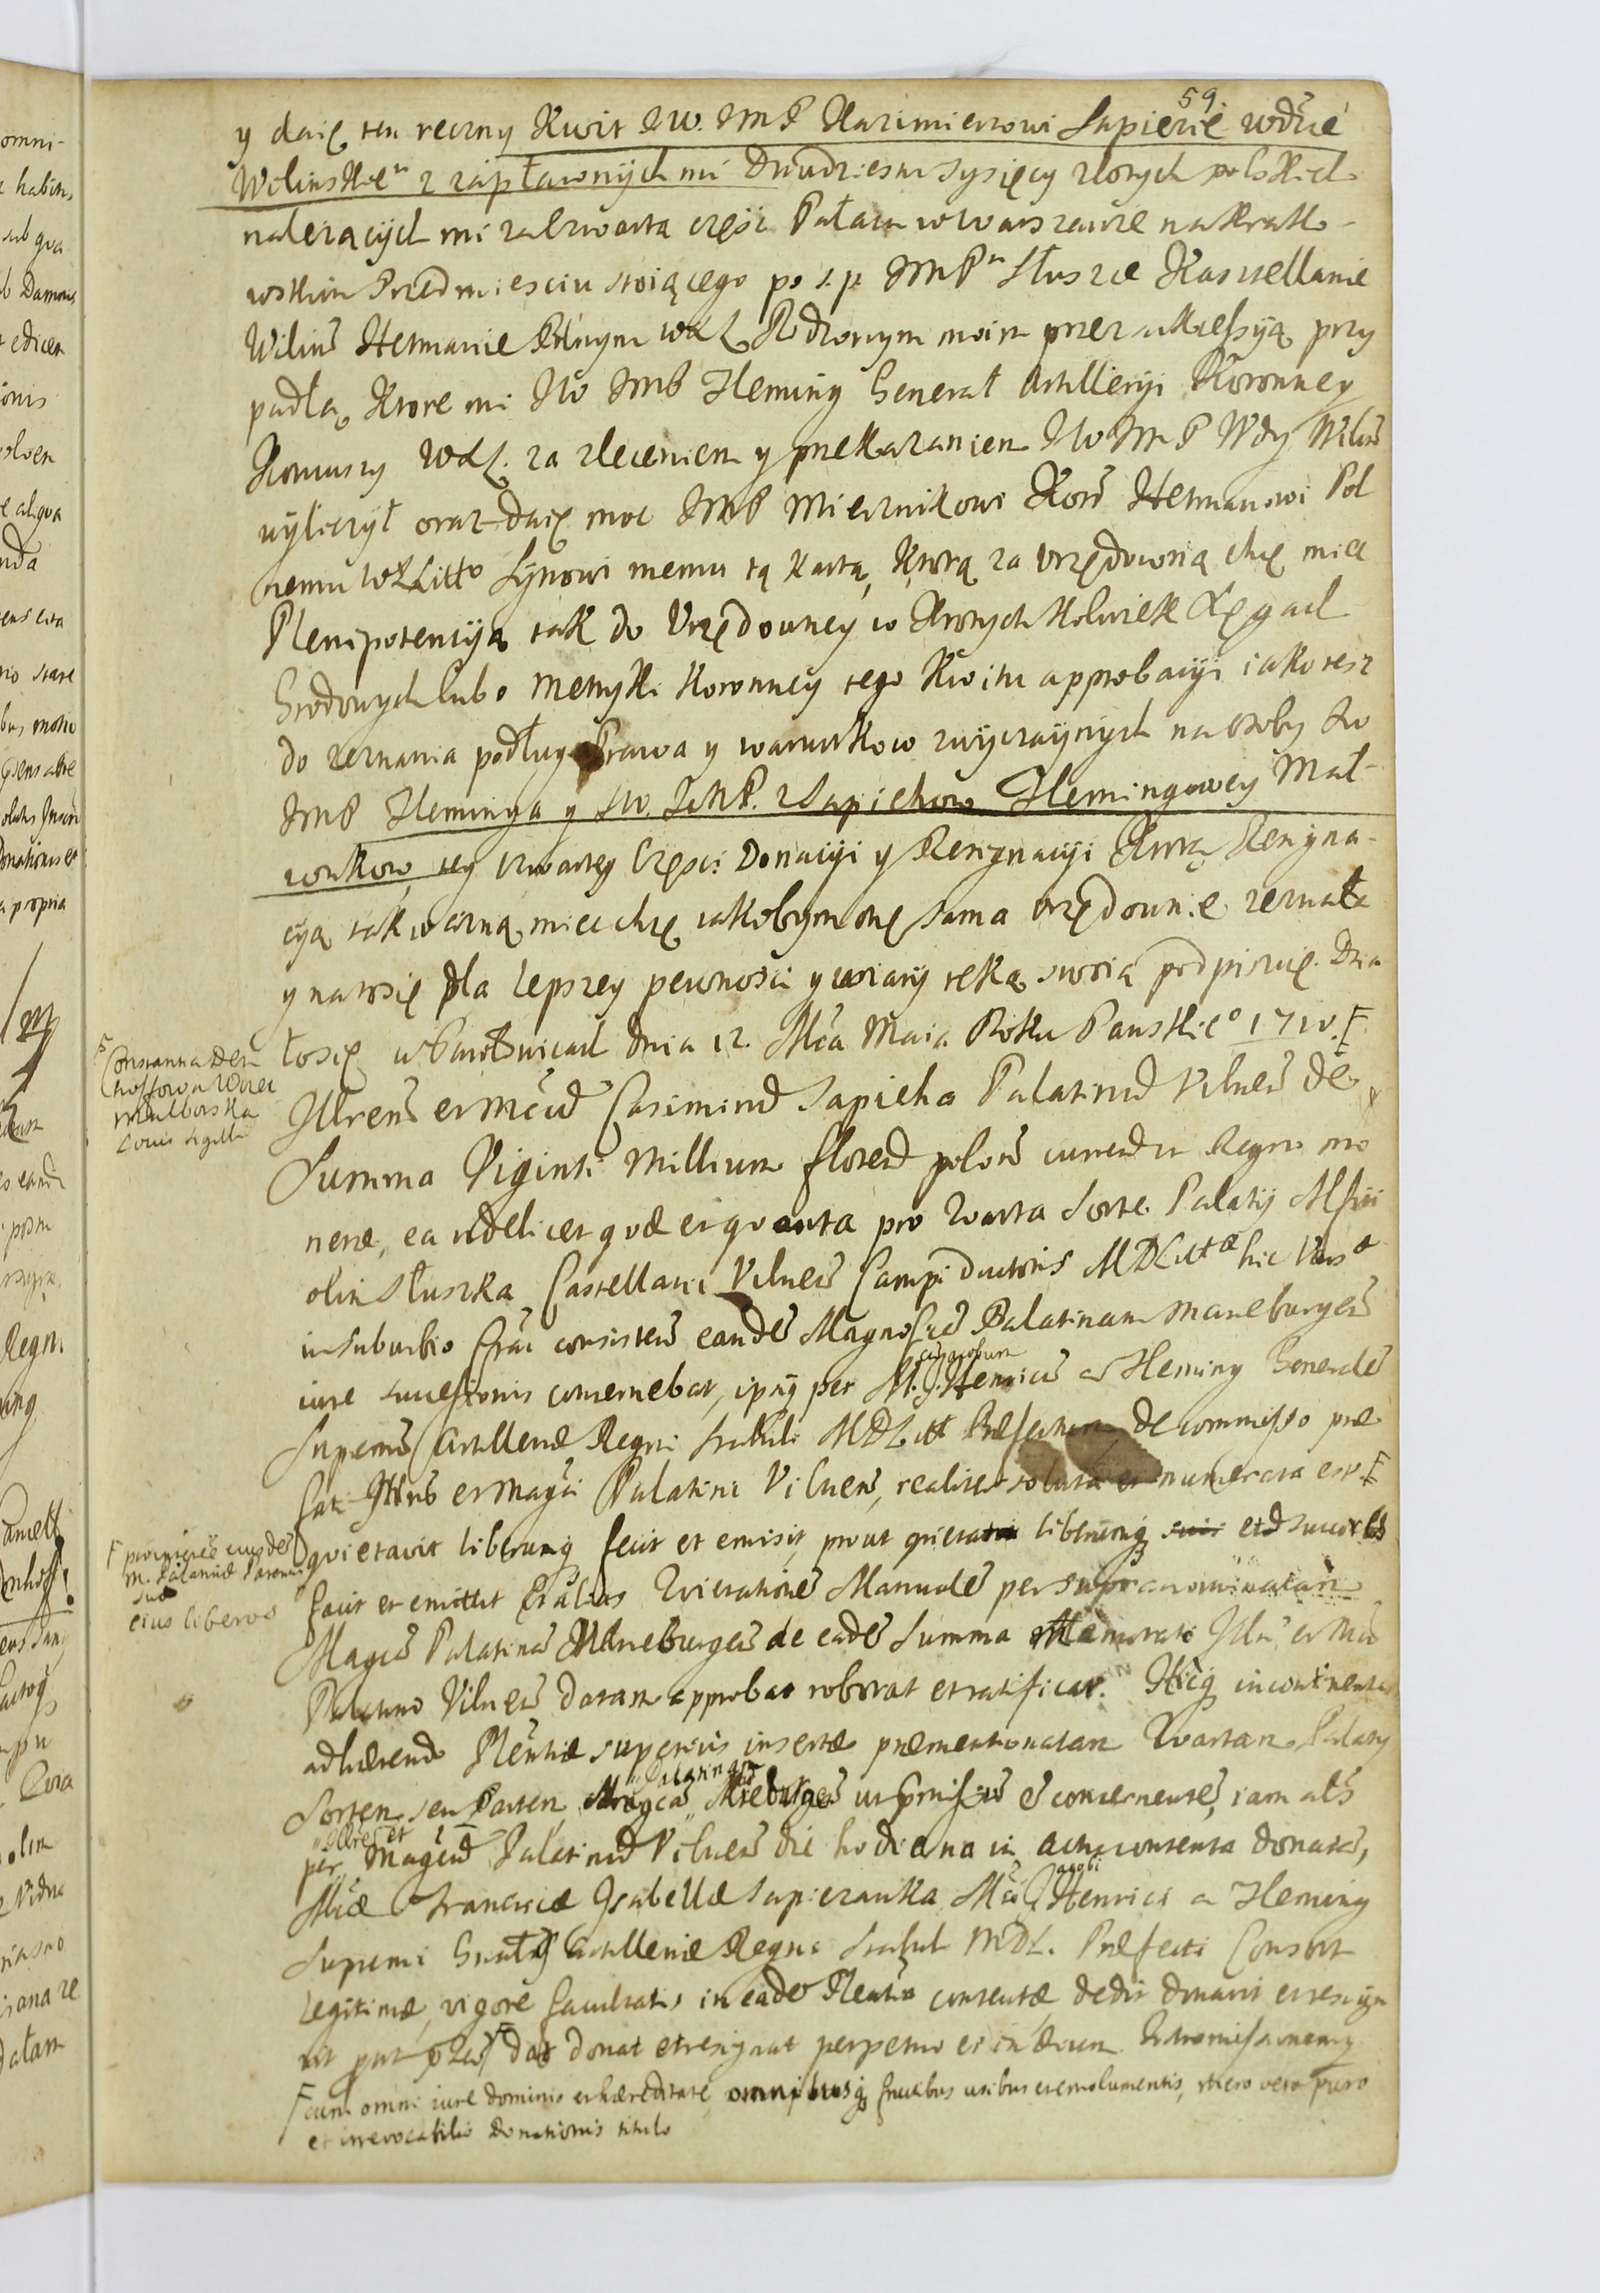 59.
y daię ten ręczny Kwit JW. JMP Kazimierzowi Sapiezie wdzie
Wilinskiem z zapłaconych mi Dwudziestu Tysięcy złotych polskich
nalezących mi za czwartą częsc Pałacu w Warszawie na Krako-
wskim Przedmiesciu stoiącego po s.p. JMPu Słuszce Kasztellanie
Wilins Hetmanie Polnym WXL Rodzonym moim przez sukcessyą przy
padłą, Ktore mi JW JMP Fleming Generał Artilleryi Koronney
Koniuszy WXL. za zleceniem y przekazaniem JW JMP Wdy Wilins
wyliczył oraz daię moc JMP Miecznikowi Koro Hetmanowi Pol
nemu WXLitto Synowi memu tą kartą, Ktorą za Urzędową chcę miec
Plenipotencyą tak do Urzędowney w Ktorych kolwiek Xięgach
Grodowych lubo Metryki Koronney tego Kwitu approbacyi iako tesz
do zeznania podług Prawa y warunkow zwyczaynych na osoby JW
JMP Fleminga y JW. JMP. z Sapiehow Flemingowey Mał-
zonkow, tey czwartey Częsci Donacyi y Rezignacyi Ktorą Rezygna-
cyą tak wazną miec chcę iakobym onę sama urzędownie zeznała
y na to się dla lepszey pewnosci y wiary ręką swoią podpisuię. Dzia
łosię w Pawłowicach dnia 12. Mca Maia Roku Panskie° 1710. F
F Constantia Den
hoffowa Wdzi
Malborska
Locus sigilli
Illrem et Mcum Casimirum Sapieha Palatinum Vilnen de
Summa Viginti Millium florenorum polon currentium in Regno mo
netæ, ea videlicet quæ et quanta pro quarta Sorte Palatij Mfici
olim Słuszka Castellani Vilnen Campi ductoris MDLittæ hic Vars
in suburbio Crac consisten eandem Magnificam Palatinam Marieburgen
iure successionis concernebat, ipsiq per M. Jacobum Henricum a Fleming Generalem
Supremum Artilleriæ Regni Stabuli MDLitt Præfectum de commisso præ
fati Illris et Magci Palatini Vilnen, realiter soluta et numerata est F
quietavit liberumq fecit et emisit, prout quietat liberumq et successores
F proinde eiusdem
M. Palatinæ
suo
eius liberos
facit et emittit Ac alias Quietationem Manualem per supranominatam
Magcam Palatinam Marieburgen de eadem Summa Memorato Illri et Mco
Palatino Vilnen datam approbat roborat et ratificat. Hicq incontinenter
adhærendo Plentiæ superius insertæ præmentionatam Quartam Palatij
Sortem seu Partem Magcam Palatinam Mrieburgen ut præmissum e concernentem, iam als
per Illrem et Magcum Palatinum Vilnen die hodierna in Actis contenta donatam,
Mcæ Franciscæ Isabellæ Sapiezanka Mci Jacobi Henrici a Fleming
Supremi Gnalis Artilleriæ Regni Stabuli MDL. Præfecti Consorti
legitimæ, vigore facultatis in eadem Plentia contentæ dedit donavit et resigna
vit put F dat donat et resignat perpetuo et in ævum. Intromissionemq
F cum omni iure dominio et hæreditate, omnibusq fructibus usibus et emolumentis, mero vero puro
et irrevocabilis donationis titulo